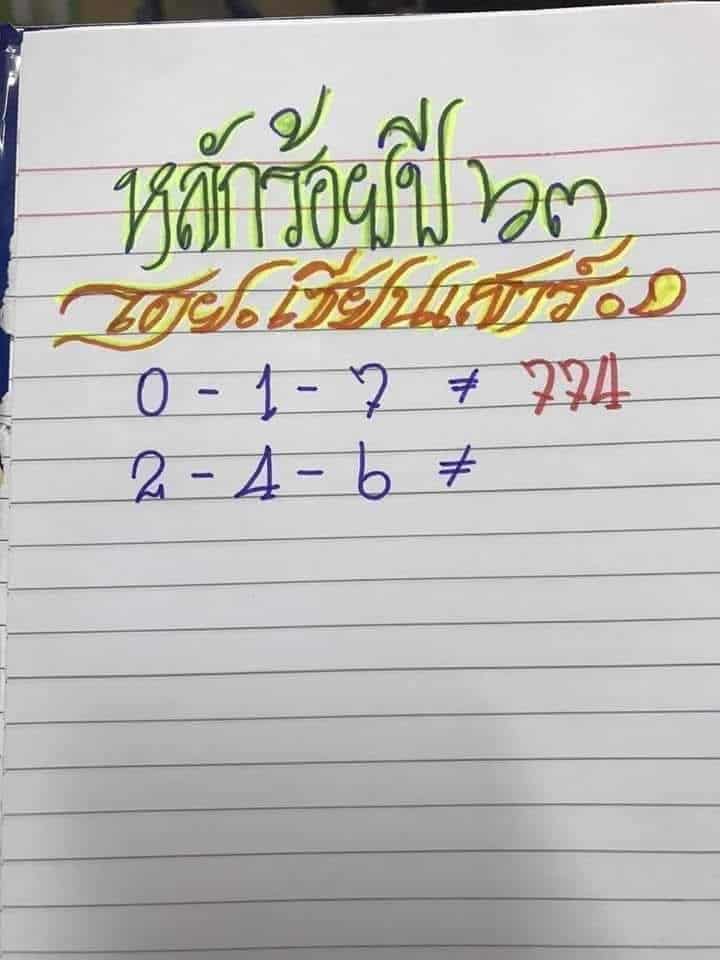 หลักร้อยปี ๖๓
โดย. เซียนเสาร์. ๑
0 - 1 - 7 ≠ 774
2 - 4 - 6 ≠